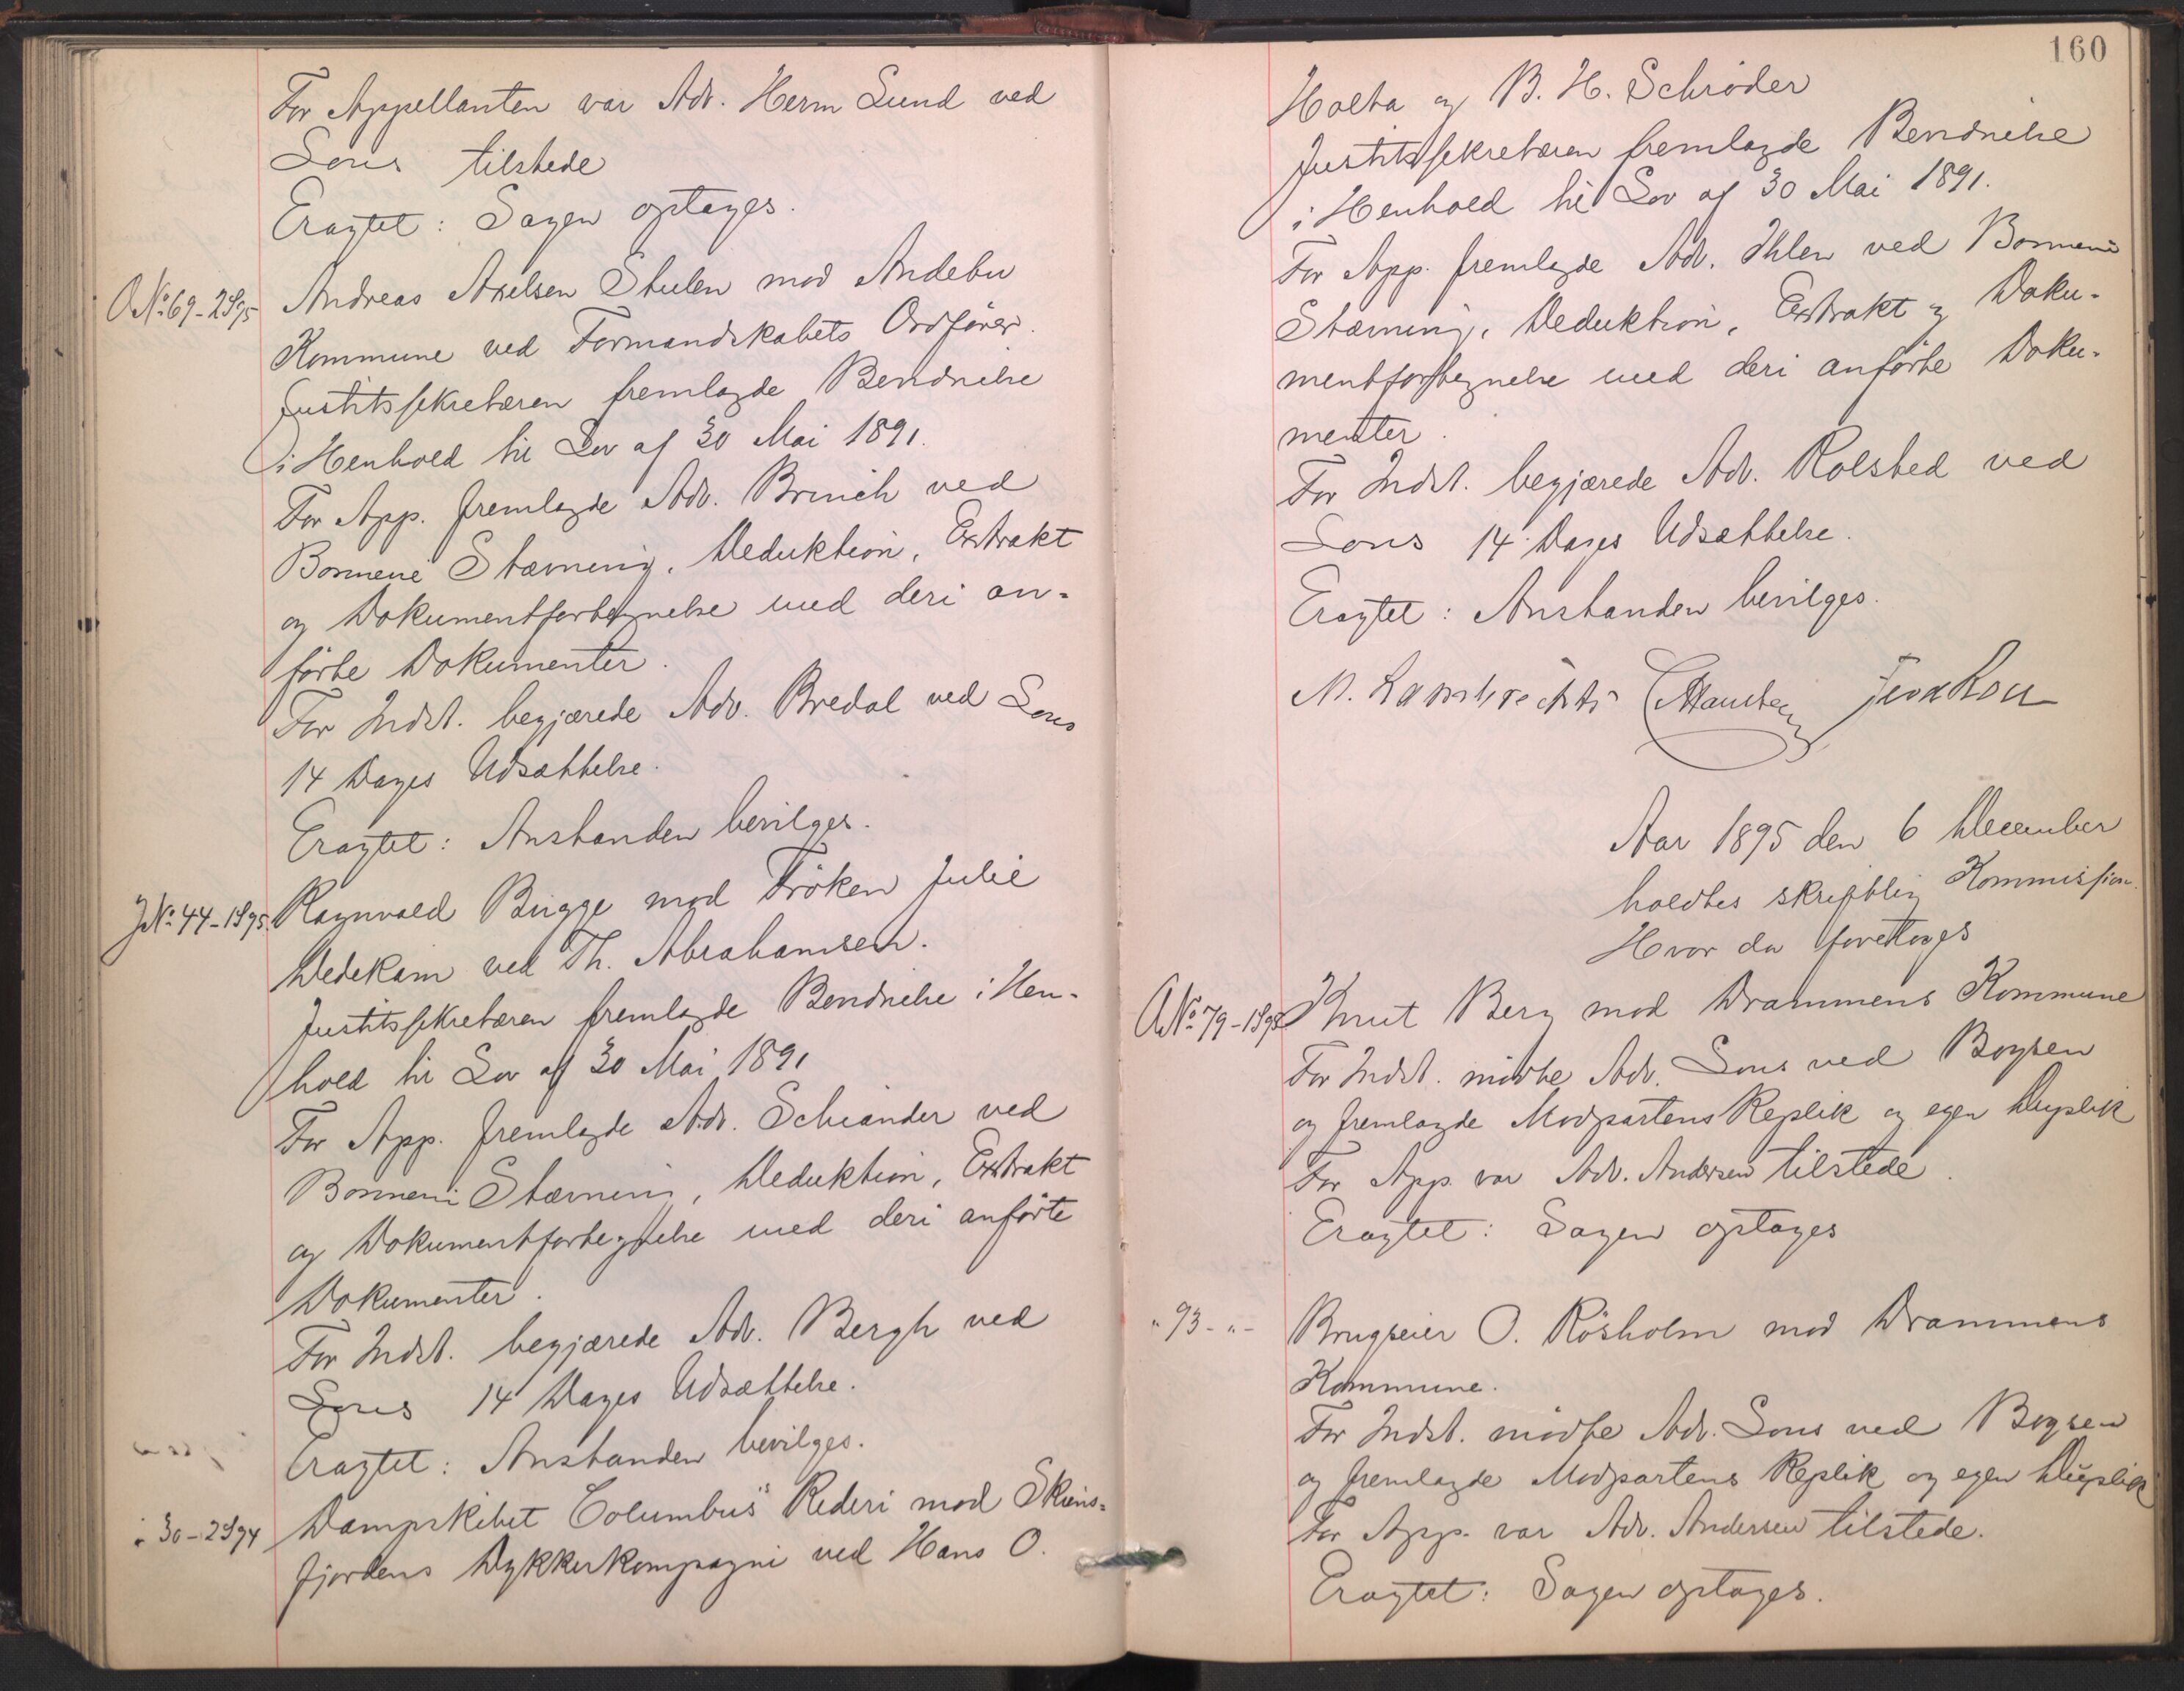 For Appellanten var Adv. Herm Lund ved
Lous tilstede
Eragtet: Sagen optages.
O№ 69-2S95
Andreas Axelsen Stulen mod Andebu
Kommune ved Formandskabets Ordfører.
Justitssekretæren fremlagde Berammelse
i Henhold til Lov af 30 Mai 1891.
For App. fremlagde Adv. Brinch ved
Bonnevie Stævning, Deduktion, Extrakt
og Dokumentfortegnelse med deri an-
førte Dokumenter.
For Indst. begjærede Adv. Bredal ved Lous
14 Dages Udsættelse.
Eragtet: Anstanden bevilges.
J№ 44-1S95.
Ragnvald Bugge mod Frøken Julie
Dedekam ved Th. Abrahamsen.
Justitssekretæren fremlagde Berammelse i Hen-
hold til Lov af 30 Mai 1891
For App. fremlagde Adv. Schiander ved
Bonnevie Stævning, Deduktion, Extrakt
og Dokumentfortegnelse med deri anførte
Dokumenter.
For Indst. begjærede Adv. Bergh ved
Lous 14 Dages Udsættelse.
Eragtet: Anstanden bevilges.
" 30-2S94
Dampskibet Columbus" Rederi mod Skiens-
fjordens Dykkerkompagni ved Hans O.
160
Holta og B. H. Schrøder
Justitssekretæren fremlagde Berammelse
i Henhold til Lov af 30 Mai 1891.
For App. fremlagde Adv. Ihlen ved Bonnevie
Stævning, Deduktion, Extrakt og Doku-
mentfortegnelse med deri anførte Doku-
menter.
For Indst. begjærede Adv. Rolsted ved
Lous 14 Dages Udsættelse.
Eragtet: Anstanden bevilges.
M. Lambrechts
Aar 1895 den 6 December
holdtes skriftlig Kommission.
Hvor da foretoges
O№ 79-1S95
Knut Berg mod Drammens Kommune
For Indst. mødte Adv. Lous ved Boysen
og fremlagde Modpartens Replik og egen Duplik
For App. var Adv. Andersen tilstede.
Eragtet: Sagen optages
" 93 - " -
Brugseier O. Røsholm mod Drammens
Kommune.
For Indst. mødte Adv. Lous ved Boysen
og fremlagde Modpartens Replik og egen Duplik
For App. var Adv. Andersen tilstede.
Eragtet: Sagen optages.